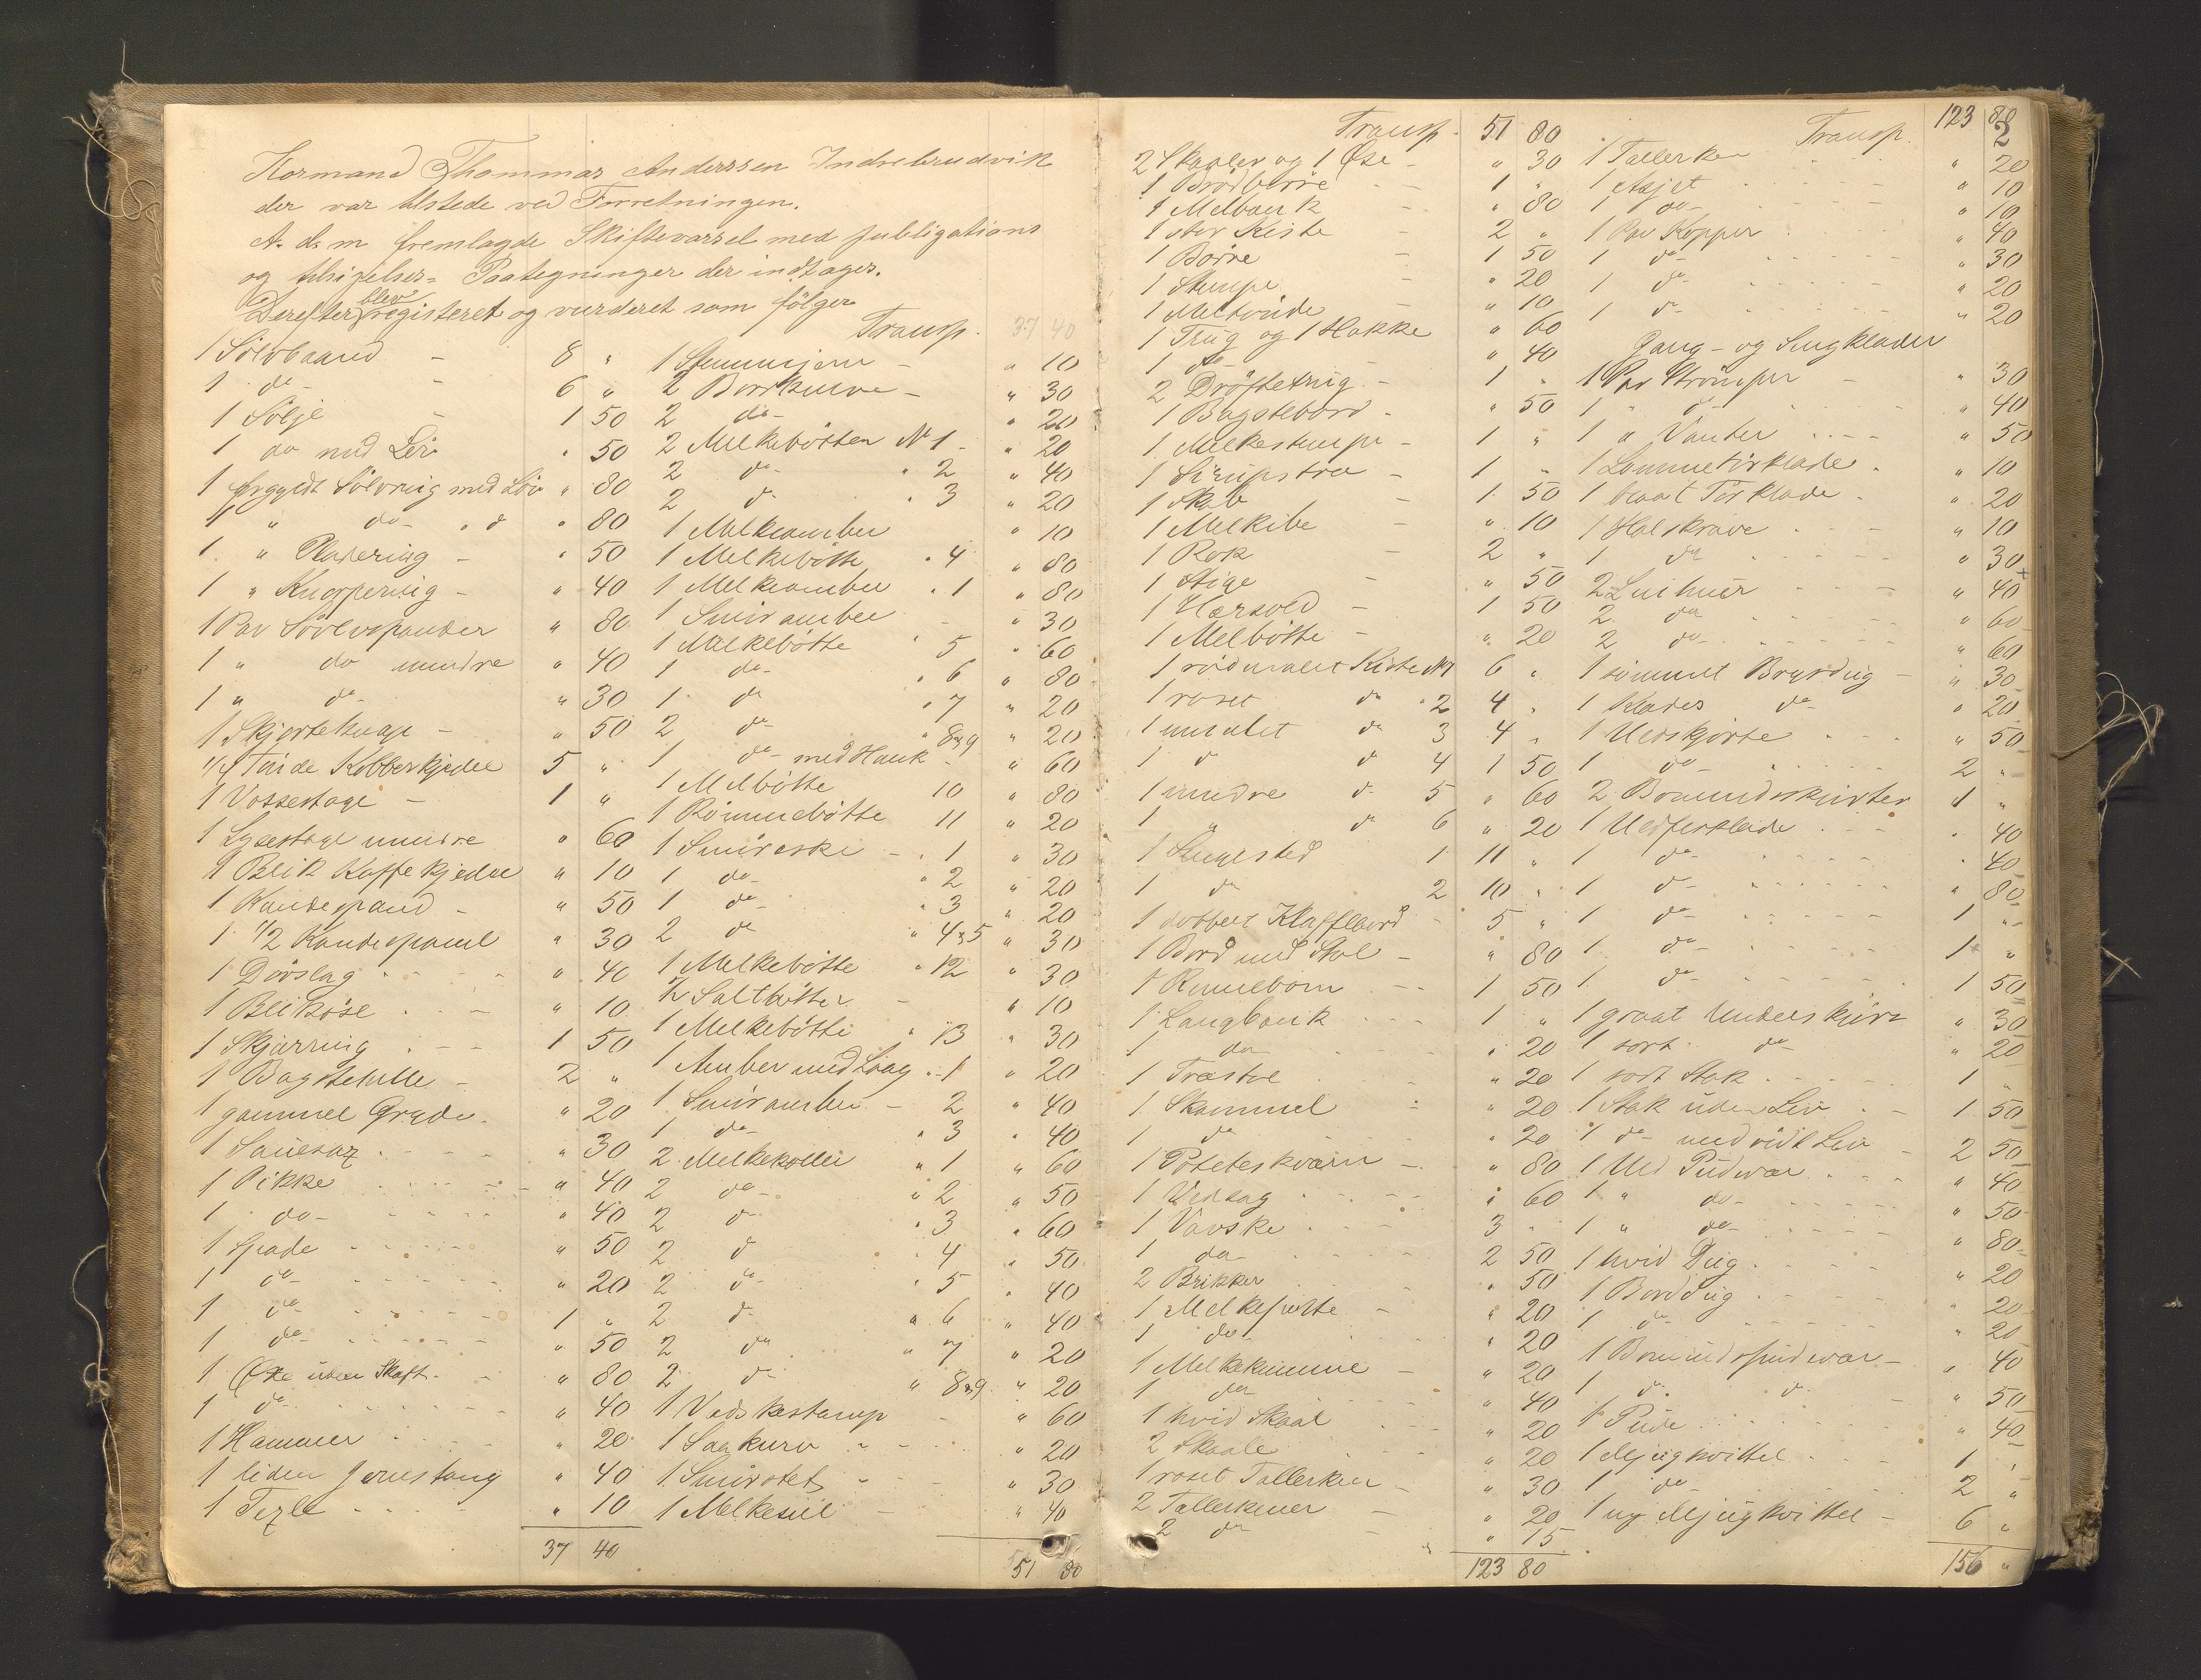 Kormand Thommas Anderssen Indrebrudvik
der var tilstede ved Forretningen.
A. d. m fremlagde Skiftevarsel med publigations
og tilsigelses- Paategninger der indtages.
Derefter blev registeret og vurderet som følger
1 Sølvbaand - 8 "
1 do - 6 "
1 Sølje - 1 50
1 do med Löv " 50
1 forgyldt Sölvring med Löv " 80
1 " do - " d " 80
1 " Pladering - " 50
1 " Knopperring - " 40
1 Par Sölvspænder " 80
1 " do mindre " 40
1 " do - " 30
1 Skjorteknap - " 50
1/4 Tönde Kobberkjedel 5 "
1 Vossestage - 1 "
1 Lysestage mindre " 60
1 Blik Kaffekjedel " 10
1 Kandespand - " 50
1 1/2 Kandespand " 30
1 Dörslag " 40
1 Blikøse " 10
1 Skjærring 1 50
1 Bagstehelle - 2 "
1 gammel Gryde " 20
1 Sauesax " 30
1 Pikke " 40
1 do - " 40
1 Spade " 50
1 do - " 20
1 do 1 "
1 do - " 50
1 Øxe uden Skaft " 80
1 do " 40
1 Hammer " 20
1 liden Jernstang " 40
1 Texle " 10
37 40
Transp. 37 40
1 Stemmejern - " 10
2 Borkurve - " 30
2 do - " 20
2 Melkebötter No 1 - " 20
2 do - " 2 " 40
2 do " 3 " 20
1 Melkeamber " 10
1 Melkebötte " 4 " 80
1 Melkeamber " 1 " 80
1 Smöramber - " 30
1 Melkebötte " 5 " 60
1 do - " 6 " 80
1 do " 7 " 20
2 do " 8 & 9 " 20
1 do - med Hank - " 60
1 Melbötte 10 " 80
1 Römmebötte 11 " 20
1 Smöræske - " 1 " 30
1 do - " 2 " 20
1 do - " 3 " 20
2 do " 4 & 5 " 30
1 Melkebötte " 12 " 30
1/2 Saltbötter - " 10
1 Melkebötte " 13 " 30
1 Amber med Laag " 1 " 20
1 Smöramber - 2 " 40
1 do - " 3 " 40
2 Melkekoller " 1 " 60
2 do - " 2 " 50
2 do " 3 " 60
2 do " 4 " 50
2 do - " 5 " 40
2 do " 6 " 40
2 do " 7 " 20
2 do " 8 & 9 " 20
1 Vadskestamp - " 60
1 Saakurv - " 20
1 Smörstet " 30
1 Melkesiil - " 40
51 80
Transp. 51 80
2 Skaaler og 1 Øse - " 30
1 Brödbörre - 1 "
1 Melbank - " 80
1 stor Kiste - 2 "
1 Börre - 1 50
1 Stampe " 20
1 Meltönde - " 10
1 Trug og 1 Hakke " 60
1 do - - " 40
2 Dröftetrug - 1 "
1 Bagstebord - " 50
1 Melkestampe - 1 "
1 Sirupstra - 1 "
1 Skab - 1 50
1 Melkibe - " 10
1 Rok - 2 "
1 Stige - " 50
1 Hærsold - 1 50
1 Melbötte - " 20
1 rödmalet Kiste No 1 6 "
1 roset do " 2 4 "
1 umalet do 3 4 "
1 do do 4 1 50
1 mindre do 5 " 60
1 " do 6 " 20
1 Sengested 1 11 "
1 do 2 10 "
1 dobbelt Klaffebord - 5 "
1 Bord med Stol - " 80
1 Rennebom - 1 50
1 Langbænk 1 "
1 do " 20
1 Træstol " 20
1 Skammel " 20
1 do " 20
1 Poteteskværn - " 80
1 Vedsag " 60
1 Vævske 3 "
1 do - 2 50
2 Brikker " 50
1 Melkeputte - " 20
1 do " 20
1 Melkekumme - " 20
1 do " 40
1 hvid Skaal " 20
2 Skaale " 20
1 roset Tallerken - " 30
2 Tallerkener - " 20
2 do - " 15
123 80
Transp. 123 80
2
1 Tallerken " 20
1 Asjet " 10
1 do - " 10
1 Par Kopper " 40
1 do " 30
1 do " 20
1 do - " 20
Gang- og Sengklæder
1 Par Strömper - " 30
1 " do - " 40
1 " Vanter " 50
1 Lommetörklæde " 10
1 blaat Törklæde " 20
1 Halskrave " 10
1 do " 30
2 Linhuer " 40
2 do " 60
2 do - " 60
1 sömmet Brystdug - " 30
1 Klædes do - " 20
1 Uldskjorte " 50
1 do - 2 "
2 Bomuldsskjorter 1 "
1 Uldforklæde " 40
1 do - " 40
1 do - " 80
1 do - 1 "
1 do - 1 "
1 do - 1 50
1 graat Underskjört " 30
1 sort do - " 20
1 sort Stak 1 "
1 Stak uden Liv - 1 50
1 do - med vidt Liv - 2 50
1 Uld Pudevar " 40
1 " do - " 50
1 " do - " 80
1 hvid Dug " 20
1 Borddug " 20
1 do - " 20
1 Bomuldspudevar - " 40
1 do do - " 50
1 Pude " 40
1 Mjugkvittel 1 "
1 do - 2 "
1 ny Mjugkvittel - 6 "
156 "